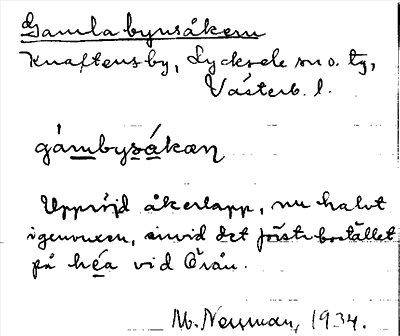 Gamla bynsåkern
Knaftens by, Lycksele sn o. tg,
Västerb. l.
gámbysákæn
Uppröjd åkerlapp, nu halvt
igenvuxen, invid det första bostället
på héa vid Örån.
M. Nensman, 1934.